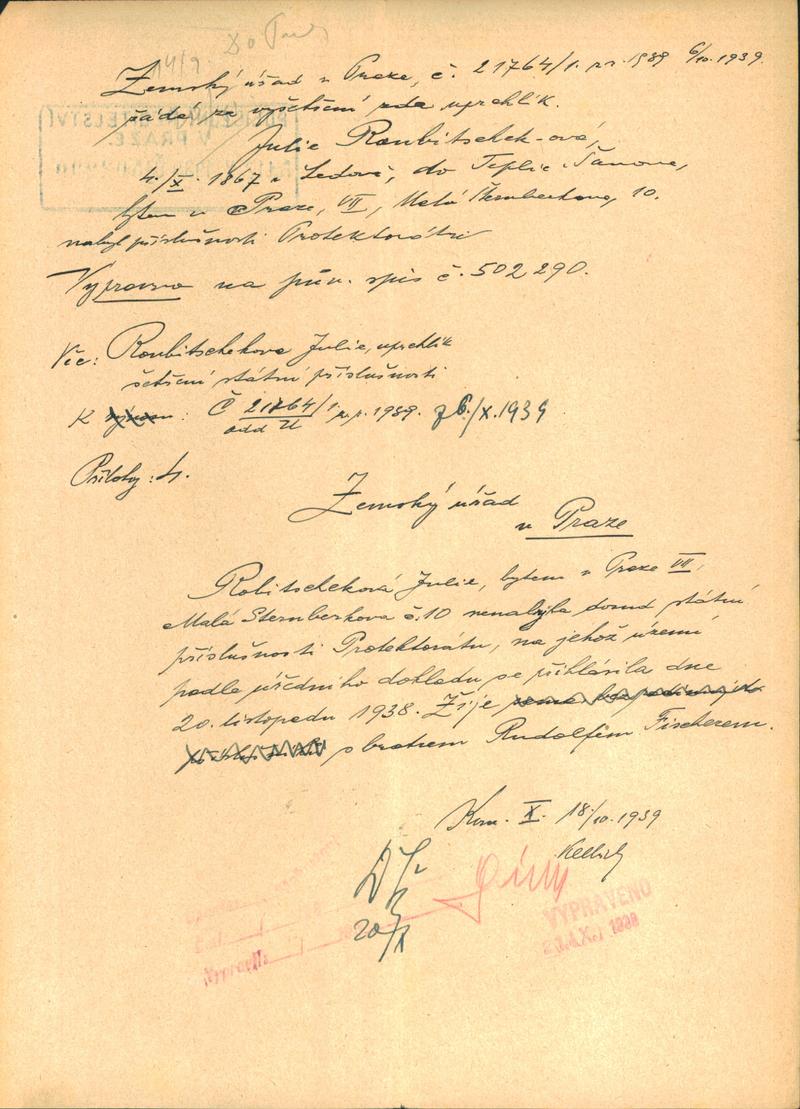 Zemský úřad v Praze, č. 21764/1. pr. 1939 6/10. 1939.
žádá za vyšetření zda uprchlík
Julie Roubitschek-ová,
4./X. 1867 v Ledově, do Teplic Šanova,
bytem v Praze, VII, Malá Šternberkova, 10.
nabyl příslušnosti Protektorátu
Vypraveno na pův. spis č. 502290.
Věc: Roubitschekova Julie, uprchlík
šetření státní příslušnosti
K : Č 21764/1. pr. 1939. z 6./X. 1939
odd
Přílohy:
Zemský úřad
v Praze
Robitscheková Julie, bytem v Praze VII,
Malá Sternberkova č. 10 nenabyla dosud státní
příslušnosti Protektorátu, na jehož území
podle úředního dokladu se přihlásila dne
20. listopadu 1938. Žije
s bratrem Rudolfem Fischerem.
Kom. X. 18/10. 1939
20/X
Vypravila
VYPRAVENO